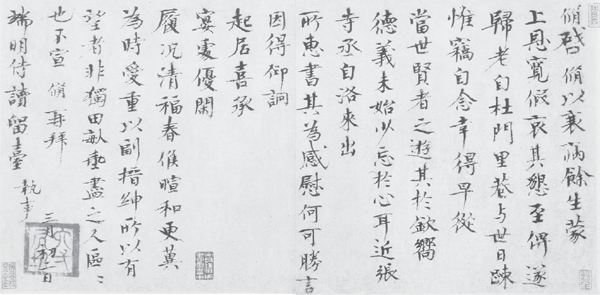 脩啓脩以衰病餘生蒙
上恩寬假哀其懇至俾遂
歸老自杜門里巷与世日踈
惟竊自念幸得早從
當世賢者之遊其於欽嚮
德義未始少忘於心耳近張
寺丞自洛來出
所惠書其為感慰何可勝言
因得仰詢
起居喜承
宴處優閑
履況清福春候暄和更冀
為時愛重以副搢紳所以有
望者非獨田畝垂盡之人區區
也不宣脩再拜
端明侍讀留臺執事
三月初二日